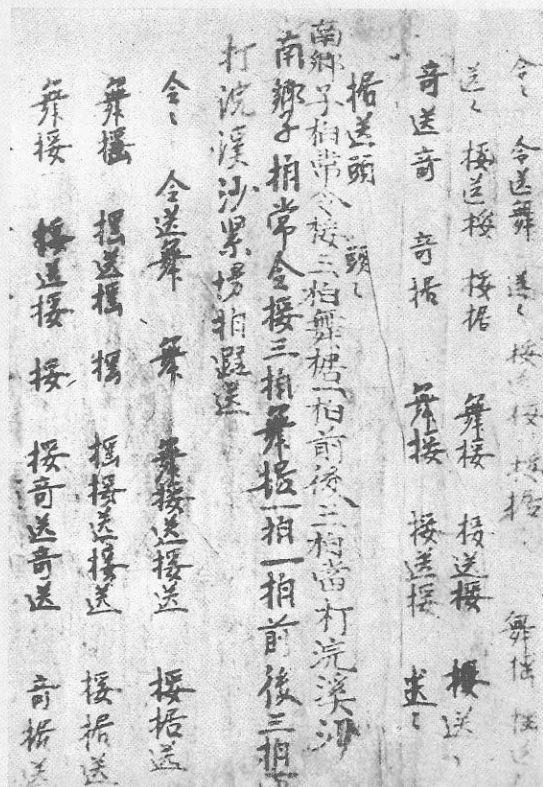 令〻 令送舞 送〻 挼送挼 挼据 舞摇
送〻 挼送挼 挼据 舞挼 挼送挼 挼送〻
奇送奇 奇据 舞挼 挼送挼 送〻
据送頭 頭〻
南鄉子拍常令挼三拍舞据一拍前後三拍當打浣溪沙
南鄉子拍常令挼三拍舞据一拍一拍前後三拍
打浣溪沙累拍送
令〻 令送舞 舞 舞挼送挼送 挼据送
舞摇 摇送摇 摇 摇挼送挼送 挼据送
舞挼 挼送挼 挼 挼奇送奇送 奇据送